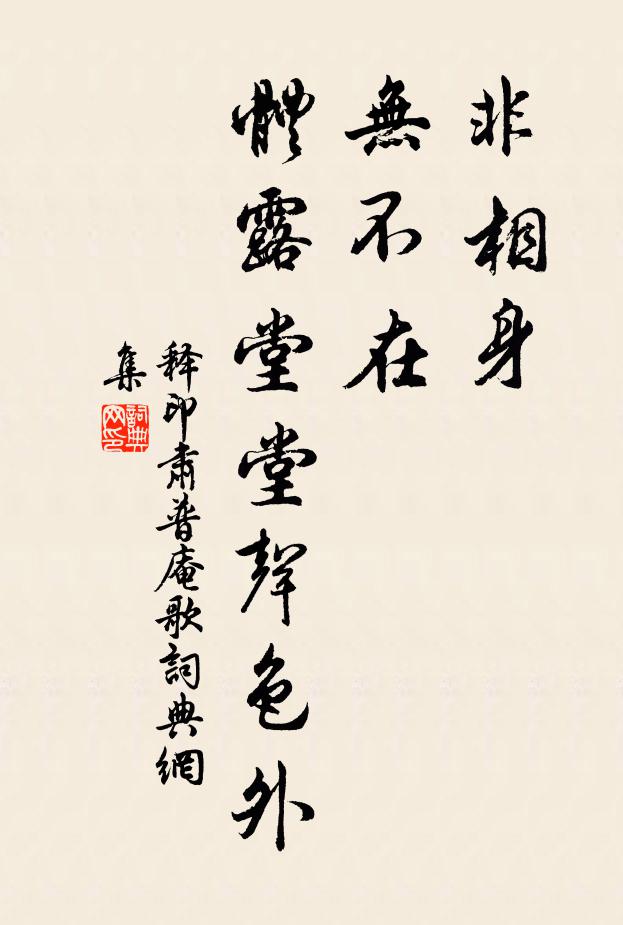 非相身
無不在
體露堂堂聲色外
释印肃普庵歌詞典網
集
詞典网印